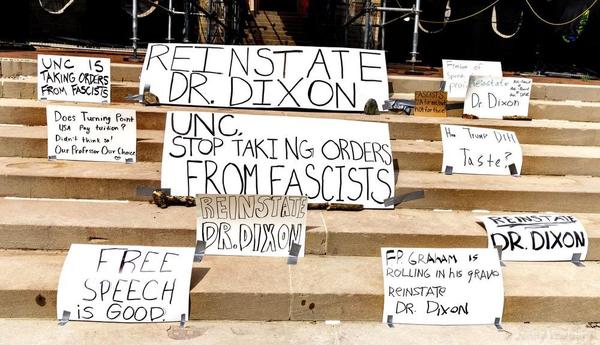 UNC IS
TAKING ORDERS
FROM FASCISTS
REINSTATE
DR. DIXON
Freedom of
Speech
Reinstate
Dr Dixon
FASCISTS
Does Turning Point
USA Pay tuition?
Didn't think so!
Our Professor Our Choice
UNC,
STOP TAKING ORDERS
FROM FASCISTS
How Trump
Taste?
REINSTATE
DR. DIXON
REINSTATE
DR. DIXON
FREE
SPEECH
is GOOD.
F.P. GRAHAM is
ROLLING IN his GRAVE
REINSTATE
DR. DIXON